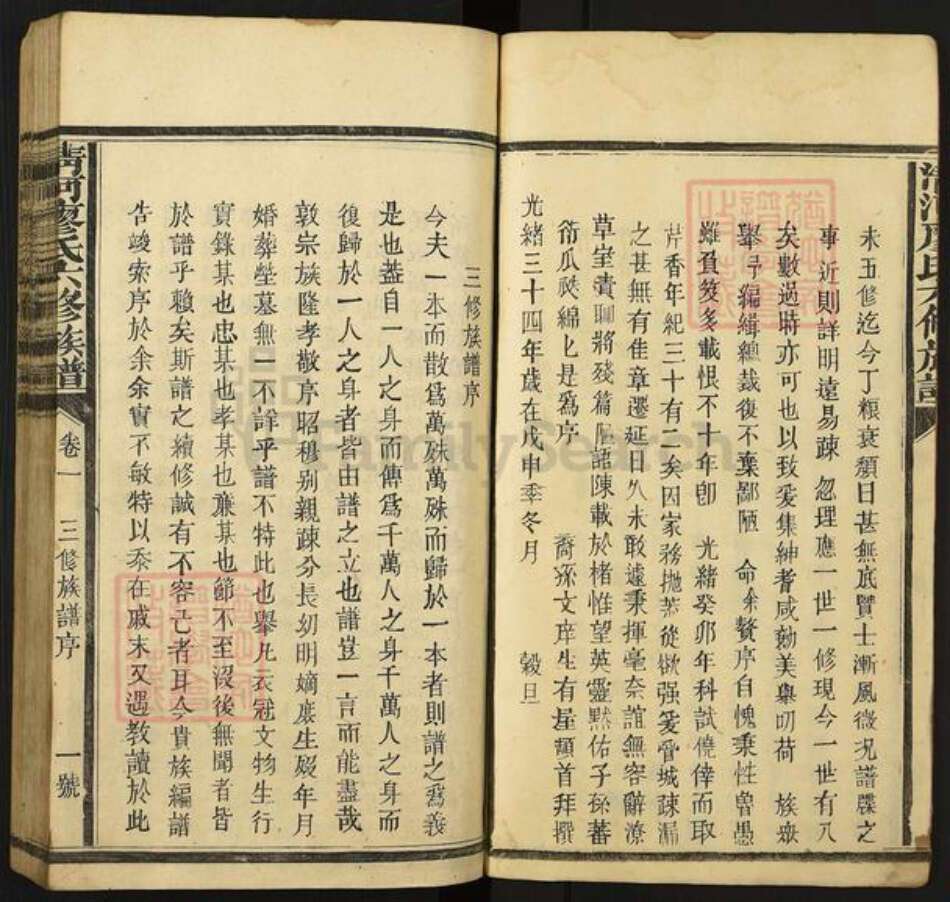 清河廖氏六修族譜
未五修迄今丁粮衰頽日甚無底賢士漸風微况譜牒之
事近則詳明遠易疎忽理應一世一修現今一世有八
矣數過時亦可也以致爰集紳耆咸勷美舉叨荷 族衆
舉予編緝總裁復不棄鄙陋 命余贅序自愧秉性魯愚
雖負笈多載恨不十年卽 光緒癸卯年科試僥倖而取
芹香年紀三十有二矣因家務抛荒從欲强爰脅城疎漏
之甚無有佳章遷延日久未敢遽秉揮毫奈誼無容辭潦
草室責聊將殘篇 語陳載於楮惟望英靈默佑子孫蕃
衍瓜瓞綿乚是爲序
裔孫文庠生有星頓首拜撰
光緒三十四年歲在戊申季冬月 穀旦
三修族譜序
今夫一本而散爲萬殊萬殊而歸於一本者則譜之爲義
是也蓋自一人之身而傳爲千萬人之身千萬人之身而
復歸於一人之身者皆由譜之立也譜豈一言而能盡哉
敦宗族隆孝敬序昭穆别親疎分長幼明嫡庶生殁年月
婚葬塋墓無一不詳乎譜不特此也舉凡衣冠文物生行
實錄某也忠某也孝某也亷某也節不至沒後無聞者皆
於譜乎賴矣斯譜之續修誠有不容已者耳今貴族編譜
告峻索序於余余實不敏特以忝在戚末又遇教讀於此
清河廖氏六修族譜 卷一 三修族譜序 一號
FamilySearch